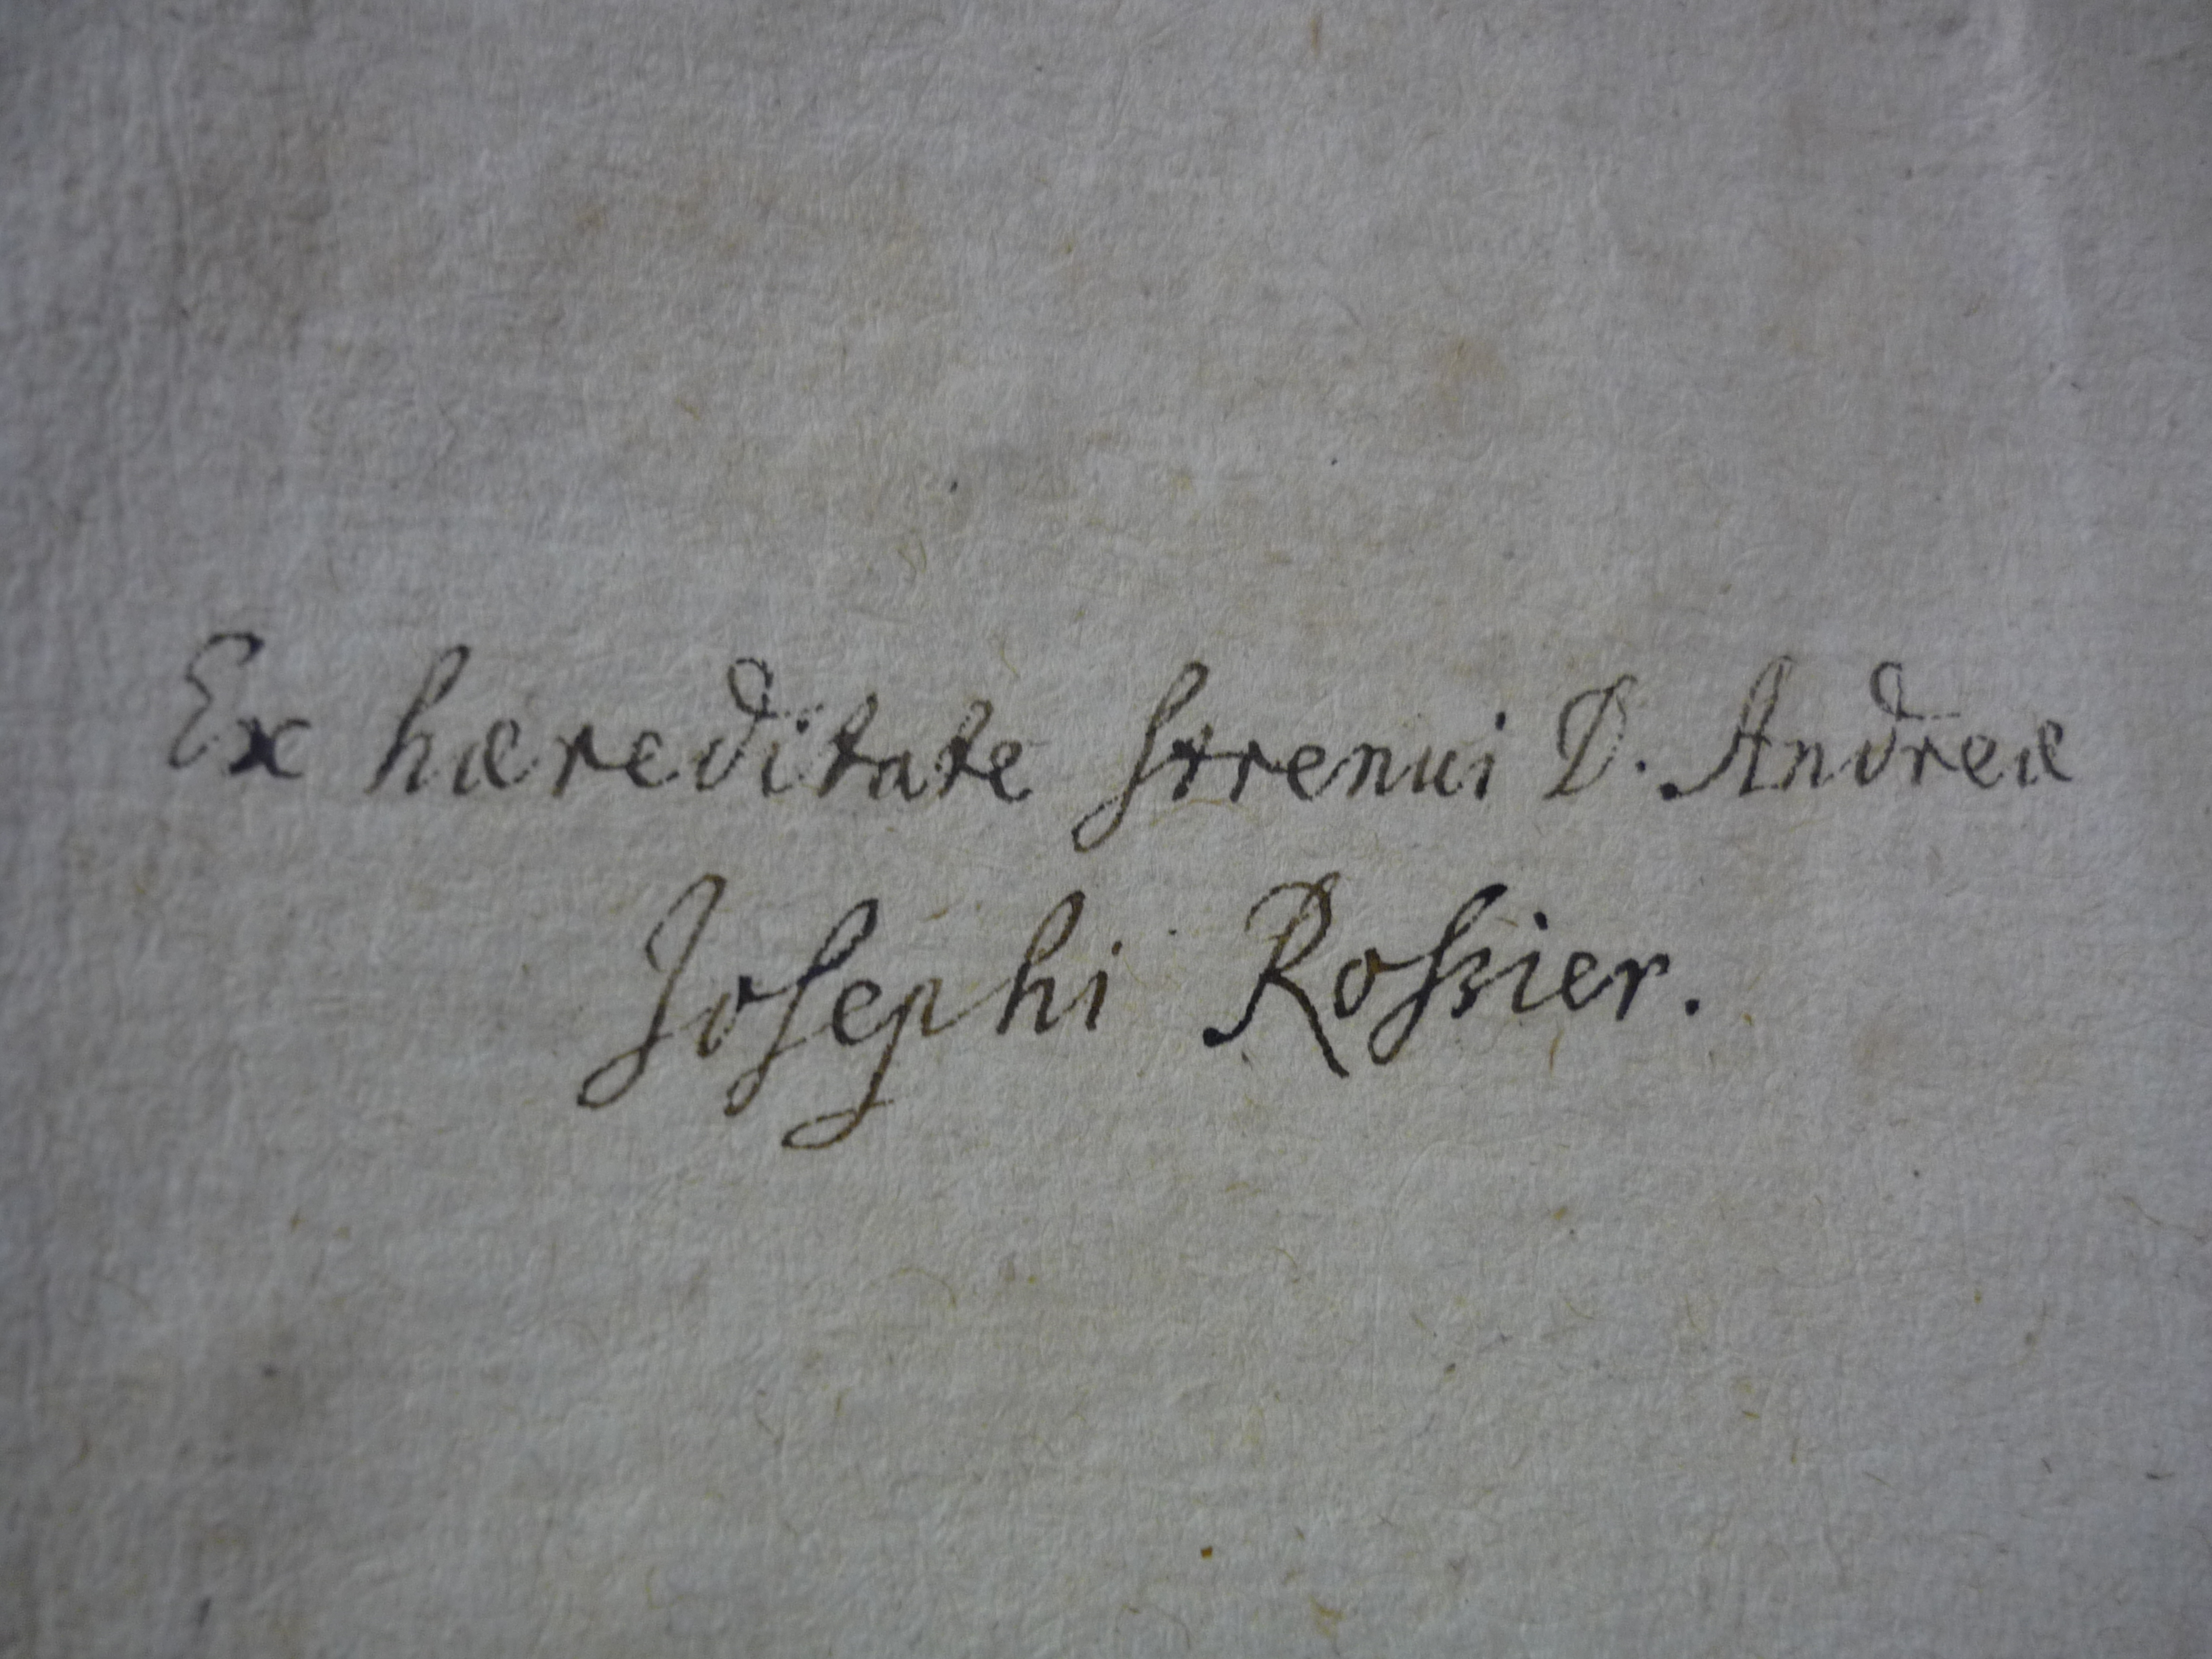 Ex hæreditate strenui D. Andreæ
Josephi Roßier.